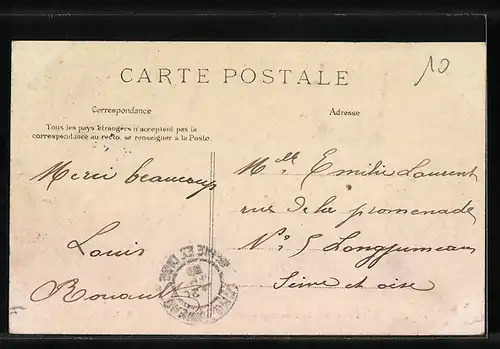 10
CARTE POSTALE
Correspondance
Adresse
Tous les pays étrangers n'acceptent pas la
correspondance au recto, se renseigner à la Poste.
Merci beaucoup
Louis
Melle Emilie Laurent
rue de la promenade
No 5 Longjumeau
Seine et oise
SEINE ET OISE